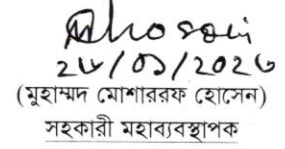 Mhosain
২৮/০১/২০২৬
(মুহাম্মদ মোশাররফ হোসেন)
সহকারী মহাব্যবস্থাপক